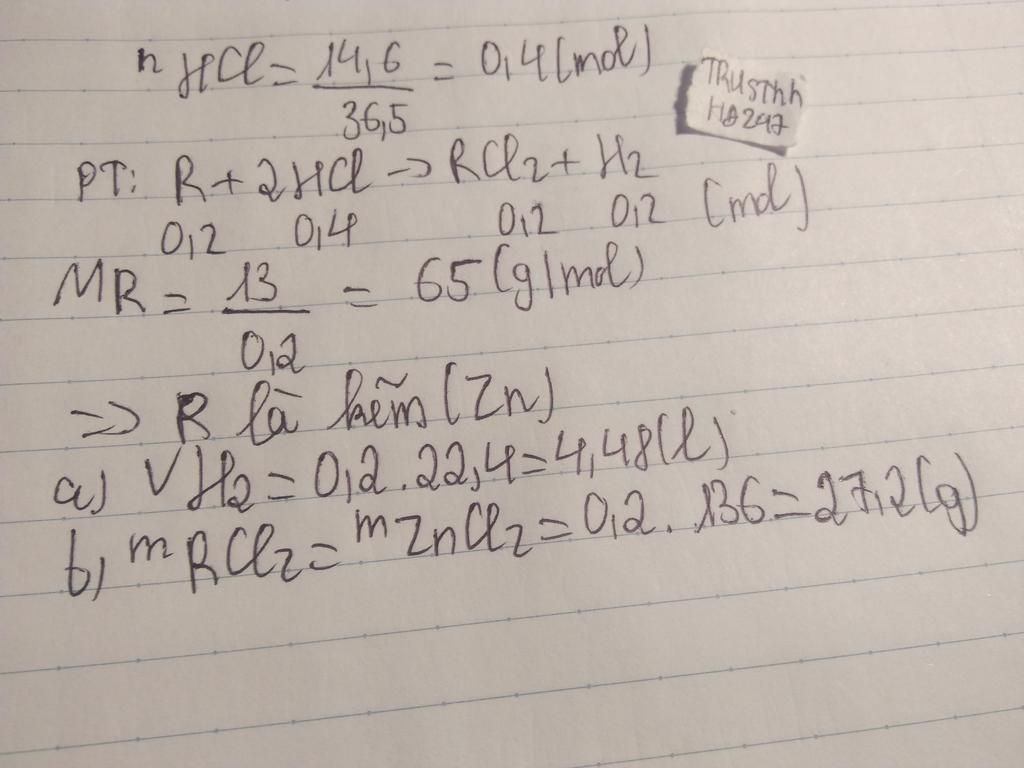 nHCl = 14,6 / 36,5 = 0,4 (mol)
TRUSThh
HB247
PT: R + 2HCl -> RCl2 + H2
0,2 0,4 0,2 0,2 (mol)
MR = 13 / 0,2 = 65 (g/mol)
=> R là kẽm (Zn)
a) VH2 = 0,2 . 22,4 = 4,48 (l)
b, mRCl2 = mZnCl2 = 0,2 . 136 = 27,2 (g)